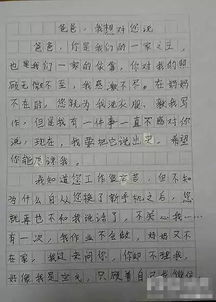 爸爸，我想对您说
爸爸，你是我们的一家之主，
也是我们一家的依靠，你对我的照
顾无微不至，我感激不尽。在妈妈
不在时，您就为我洗衣服，教我写
作，但是我有一件事一直不敢对你
说，现在，我要把它说出来，希望
你能原谅我。
我知道您工作些辛苦，但不知
为什么自从您换了新手机之后，您
就再也不和我说话了，不关心我……
有一次，我作业不会做，妈妈又不
在家，我过去问您，你却不理我，
好像我是空气，只顾着自己发微信